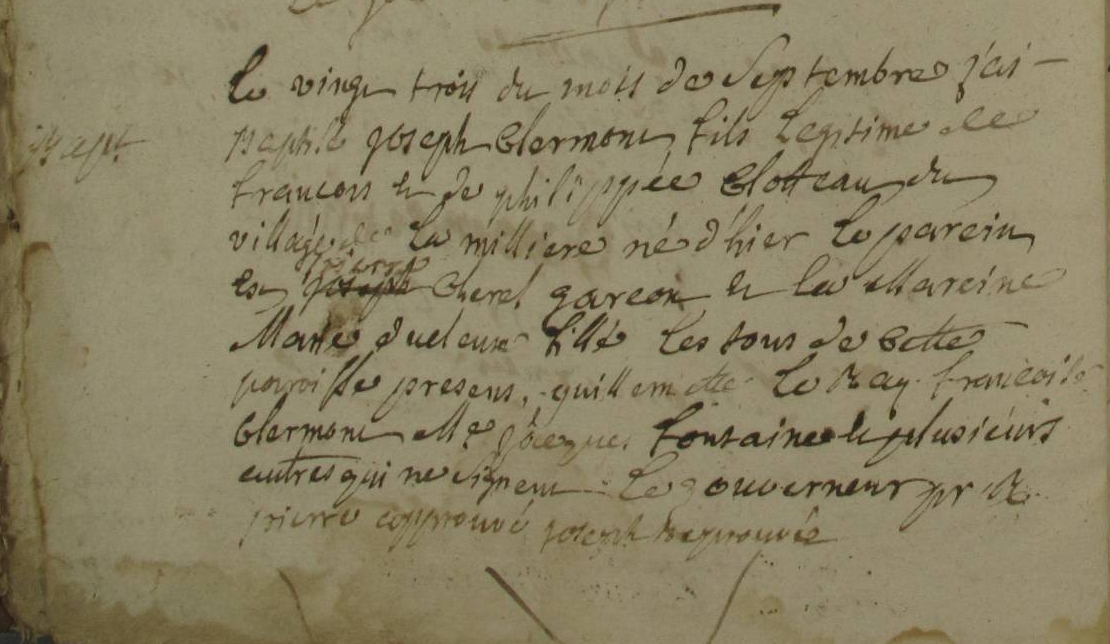 Bapt
Le vingt trois du mois de Septembre j'ai
Baptisé joseph Clermont fils Legitime de
francois et de philippée Clotteau du
village de La milliere né d'hier Le parein
est pierre joseph Cherel garcon et La Mareine
Marie fille Les tous de Cette
paroisse presens, guillemette Le Ray francoise
Clermont jacques fontaine et plusieurs
autres qui ne signent Le gouverneur pr R
pierre approuvé joseph reprouvée